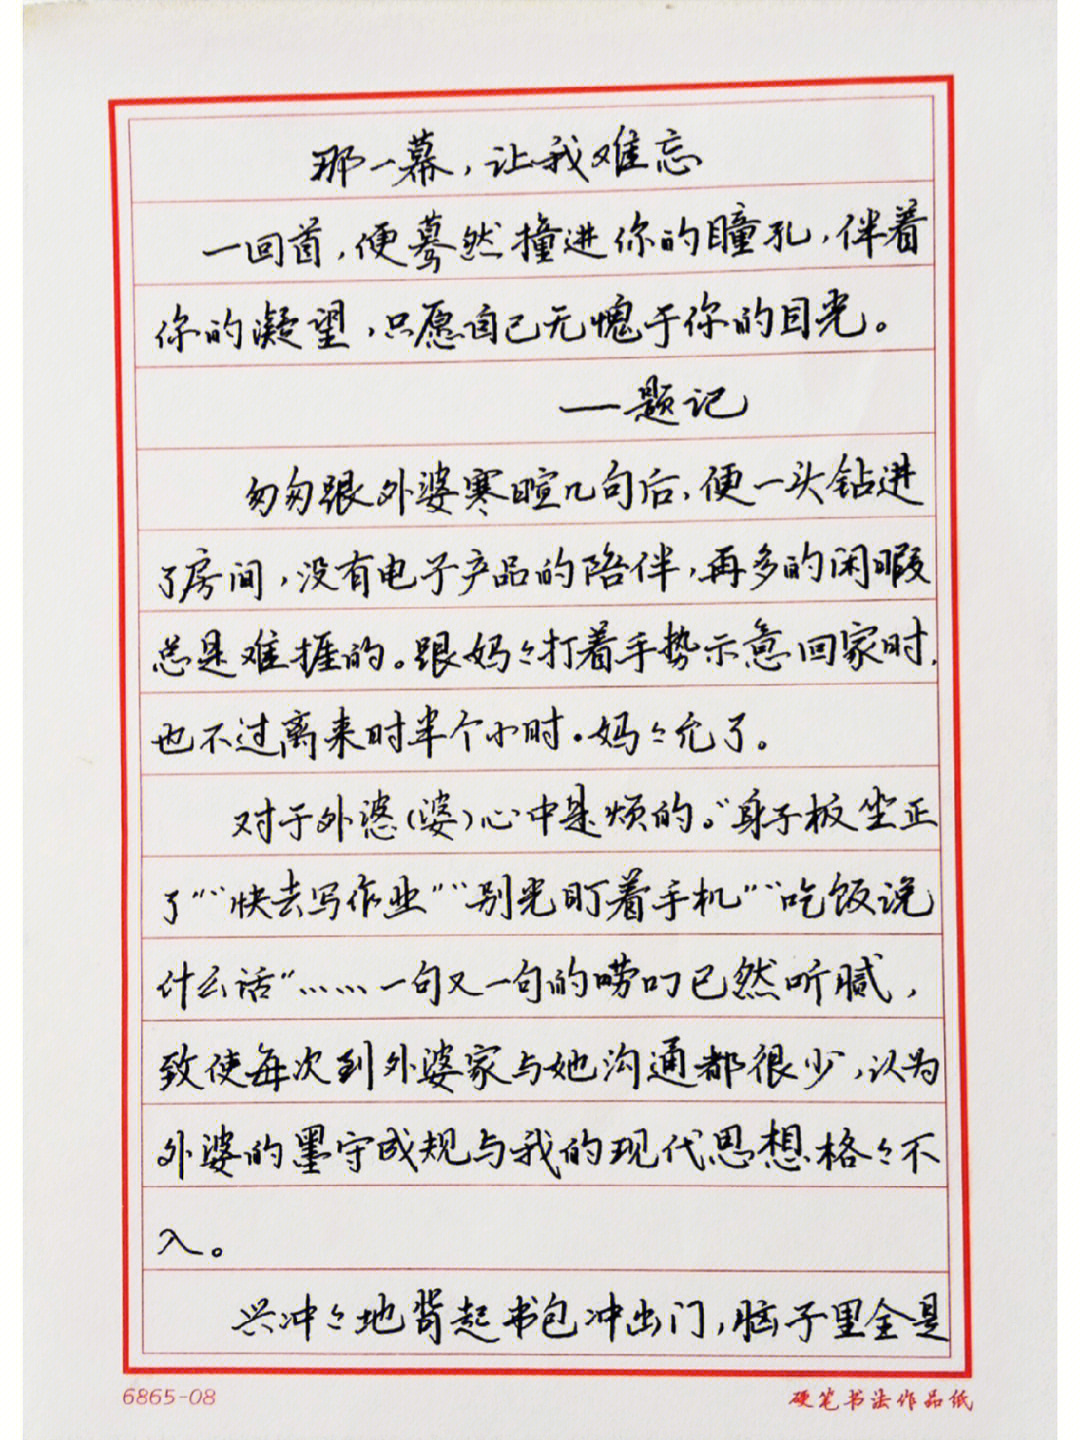 那一幕，让我难忘
一回首，便蓦然撞进你的瞳孔，伴着
你的凝望，只愿自己无愧于你的目光。
——题记
匆匆跟外婆寒暄几句后，便一头钻进
了房间，没有电子产品的陪伴，再多的闲暇
总是难捱的。跟妈々打着手势示意回家时，
也不过离来时半个小时。妈々允了。
对于外(婆)心中是烦的。“身子板坐正
了”“快去写作业”“别光盯着手机”“吃饭说
什么话”……一句又一句的唠叨已然听腻，
致使每次到外婆家与她沟通都很少，认为
外婆的墨守成规与我的现代思想格々不
入。
兴冲々地背起书包冲出门，脑子里全是
6865-08
硬笔书法作品纸